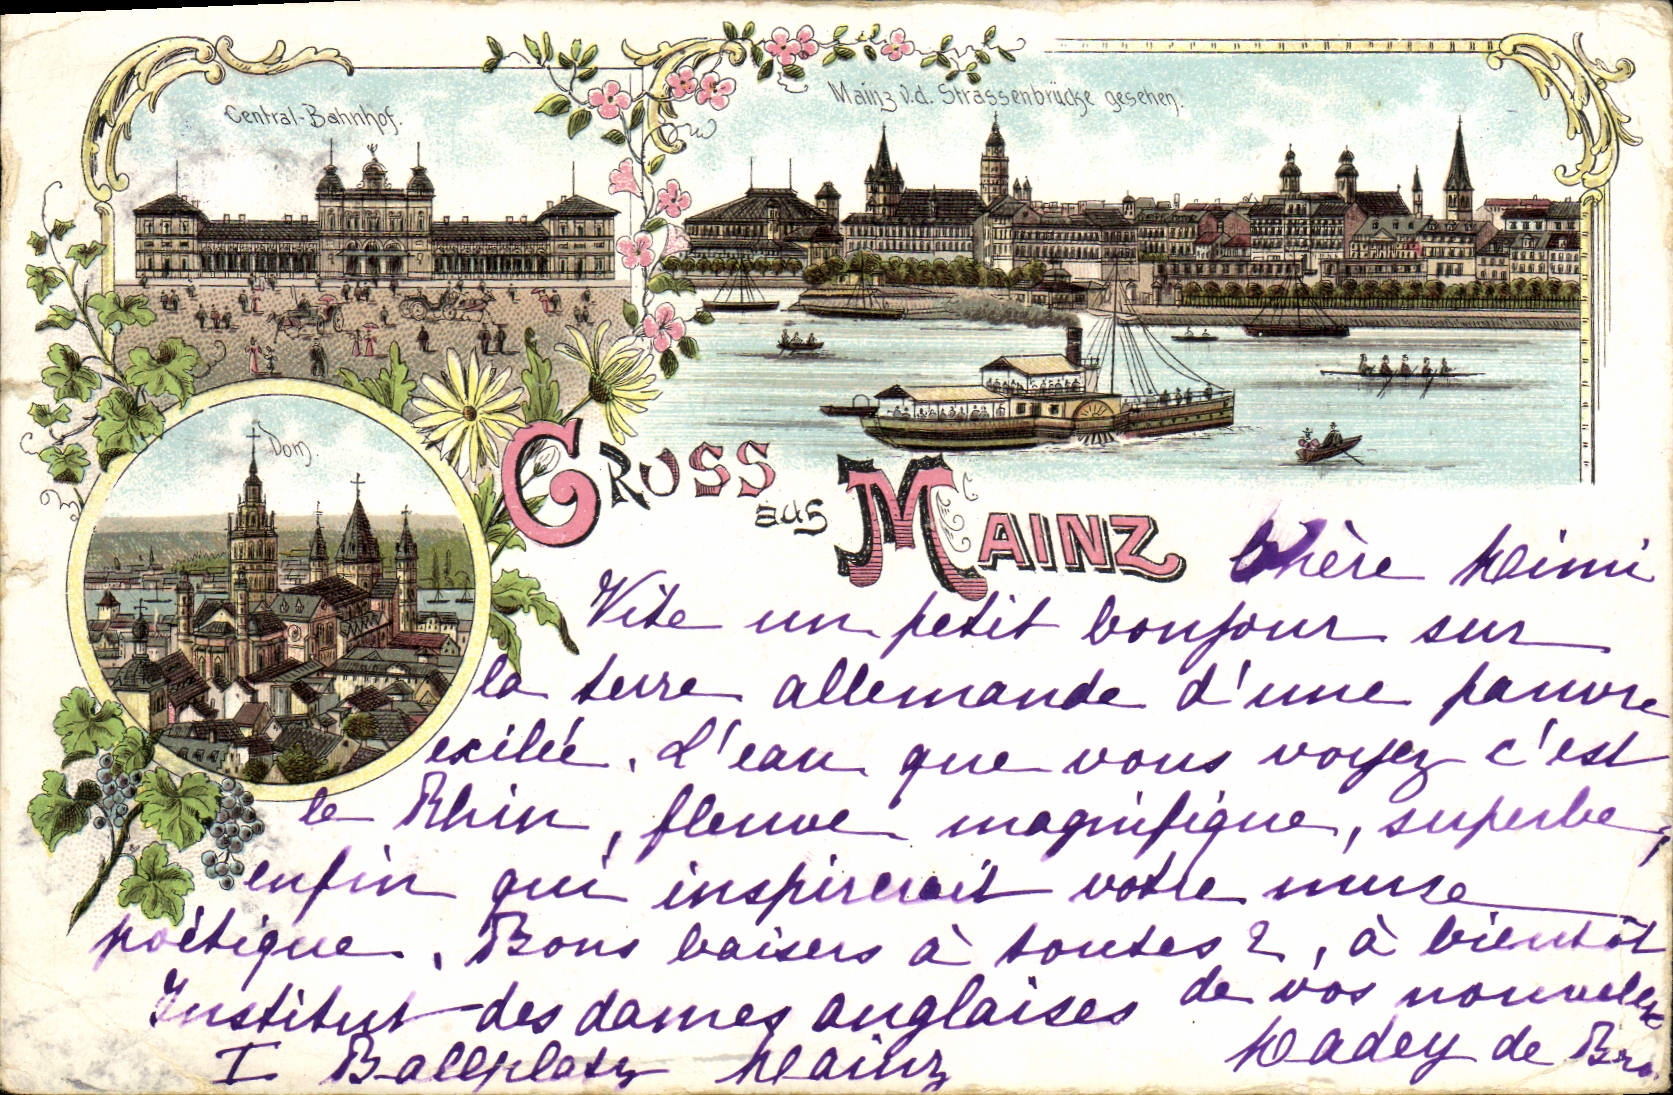 Central-Bahnhof.
Mainz v.d. Strassenbrücke gesehen.
Dom.
GRUSS aus MAINZ
Chère Mimi
Vite un petit bonjour sur
la terre allemande d'une pauvre
exilée. L'eau que vous voyez c'est
le Rhin, fleuve magnifique, superbe,
enfin qui inspirerait votre muse
poétique. Bons baisers à toutes 2, à bientôt
de vos nouvelles
Institut des dames anglaises
I Ballplatz Mainz
Madey de